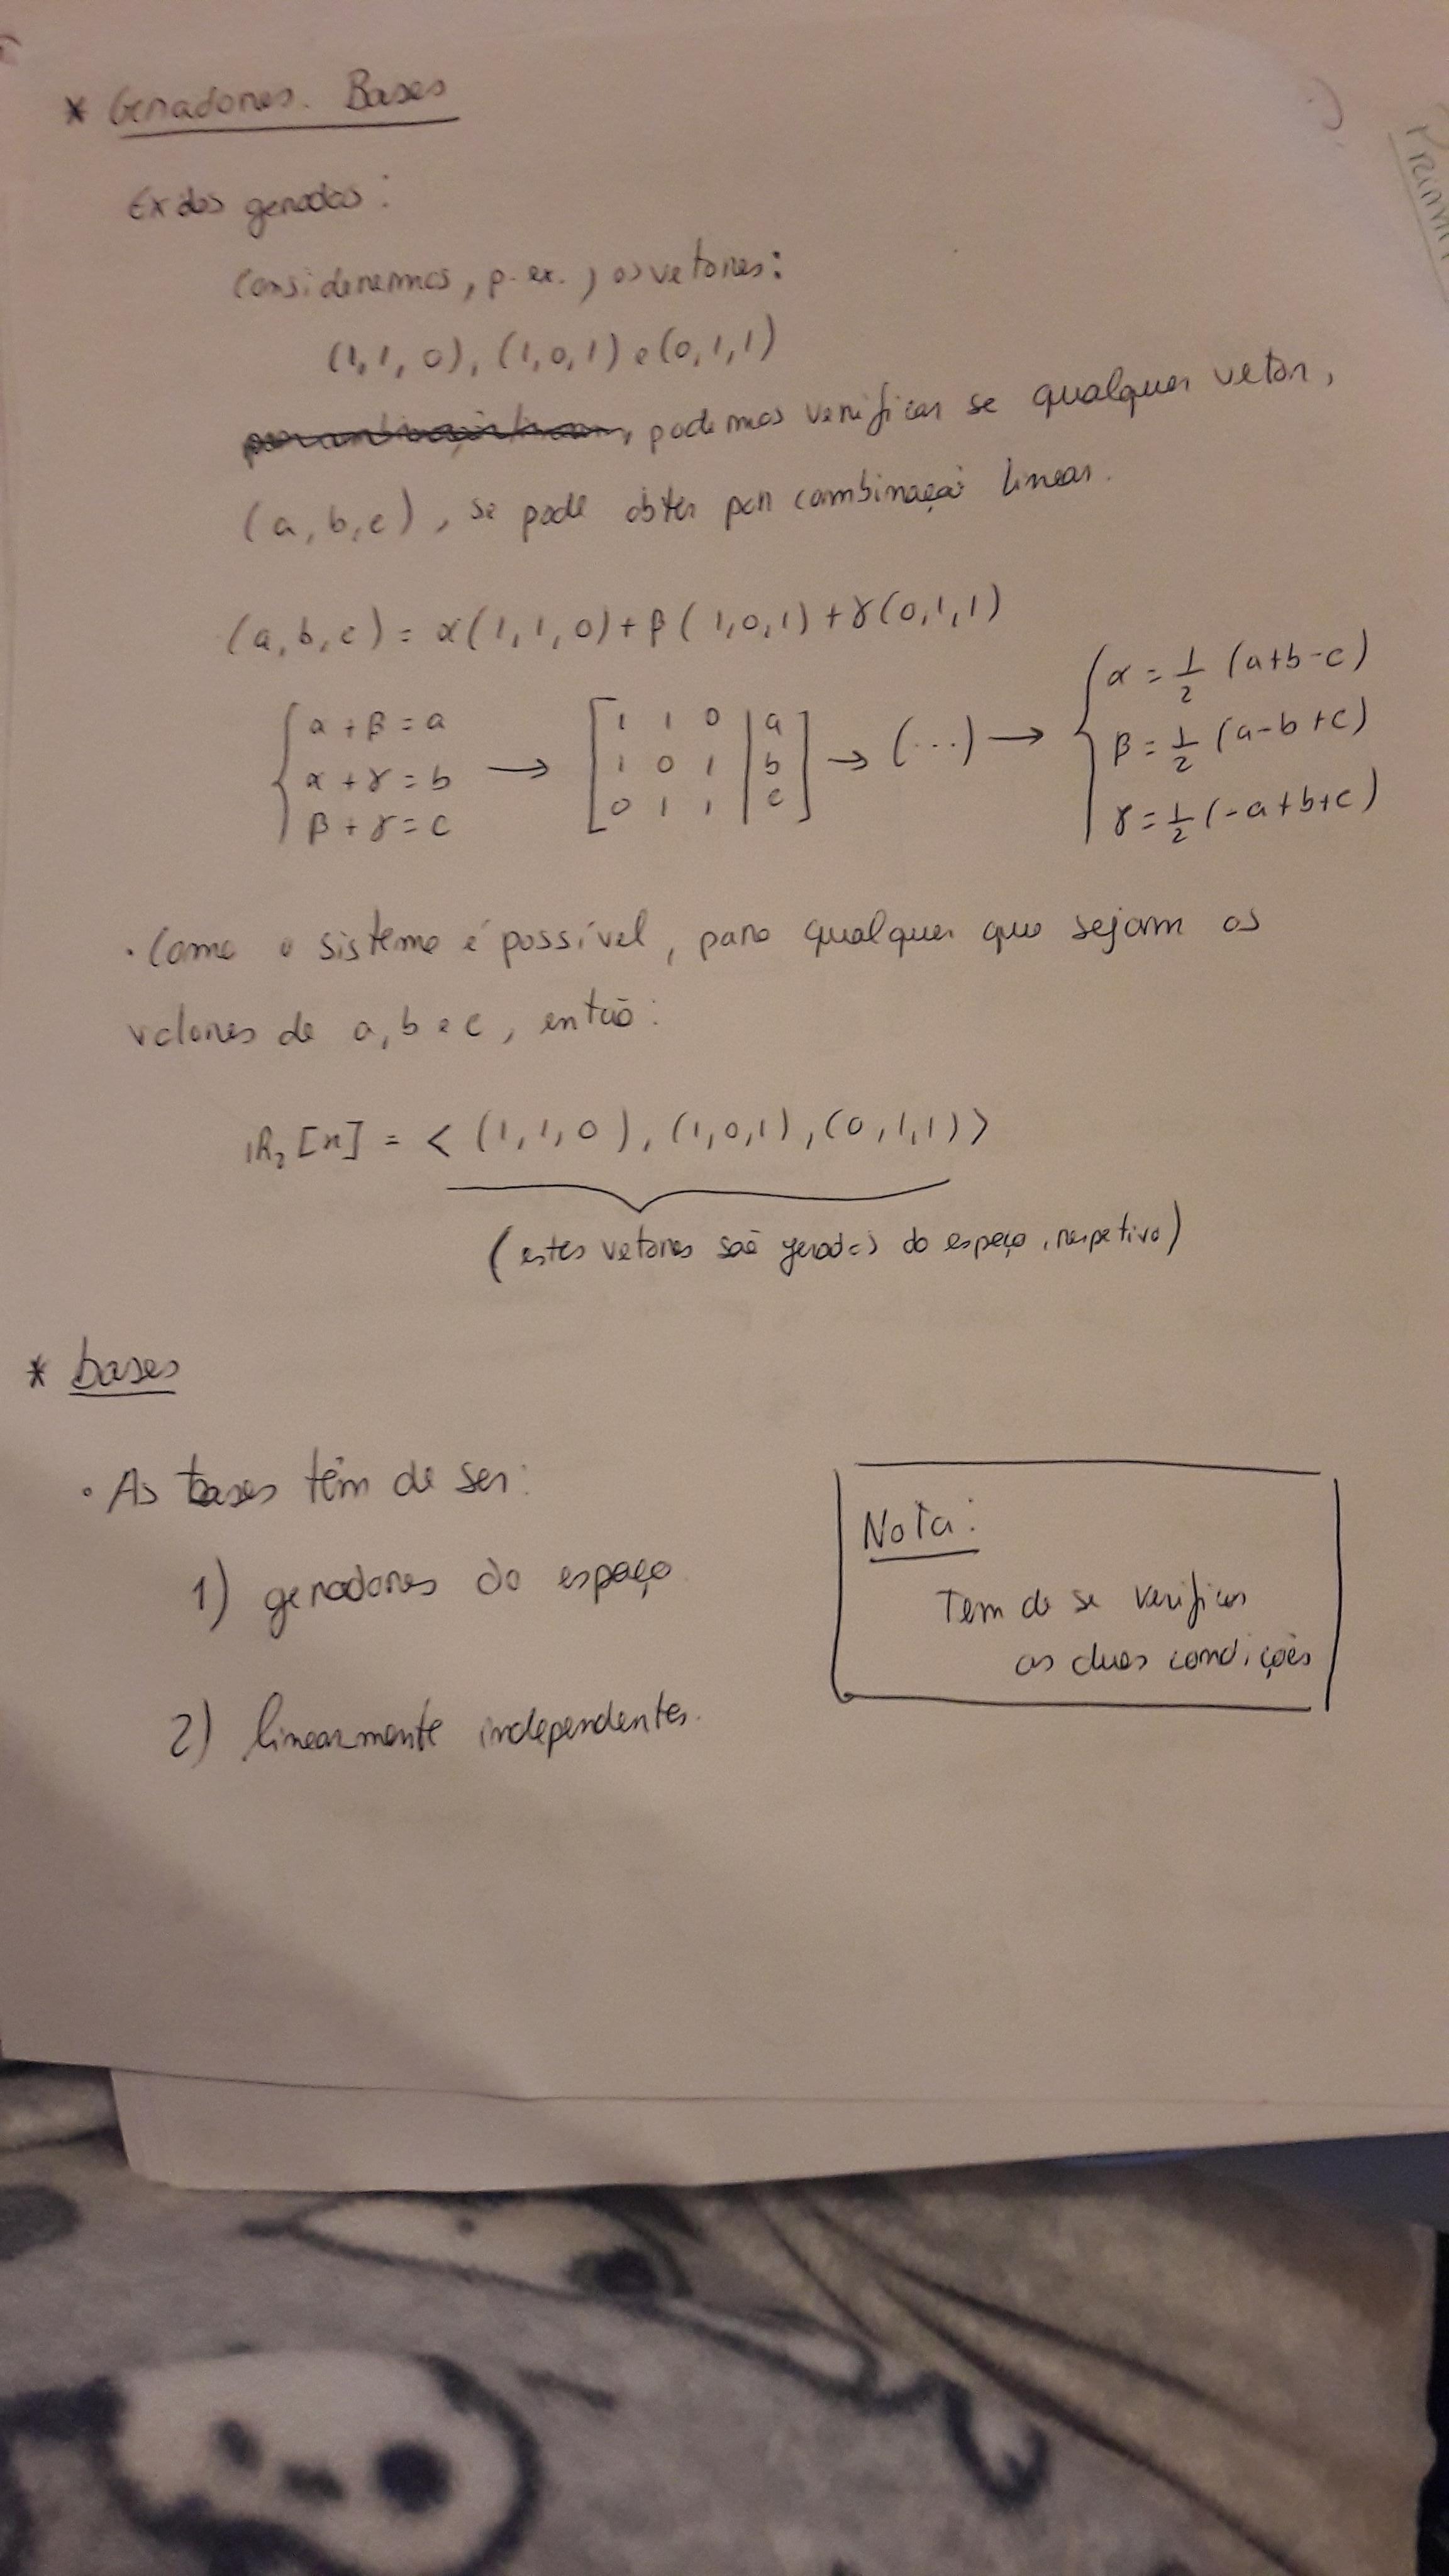 * Geradores. Bases
Ex dos gerados:
Consideremos, p. ex., os vetores:
(1, 1, 0), (1, 0, 1) e (0, 1, 1)
podemos verificar se qualquer vetor,
(a, b, c), se pode obter por combinação linear.
(a, b, c) = α(1, 1, 0) + β(1, 0, 1) + γ(0, 1, 1)
{ α + β = a
α + γ = b
β + γ = c
→ [ 1 1 0 | a
1 0 1 | b
0 1 1 | c ]
→ (...) →
{ α = 1/2 (a+b-c)
β = 1/2 (a-b+c)
γ = 1/2 (-a+b+c)
· Como o sistema é possível, para qualquer que sejam os
valores de a, b e c, então:
= < (1, 1, 0), (1, 0, 1), (0, 1, 1) >
(estes vetores são do espaço, respetivo)
* bases
· As bases têm de ser:
1) geradores do espaço
2) linearmente independentes.
Nota:
Tem de se verificar
as duas condições